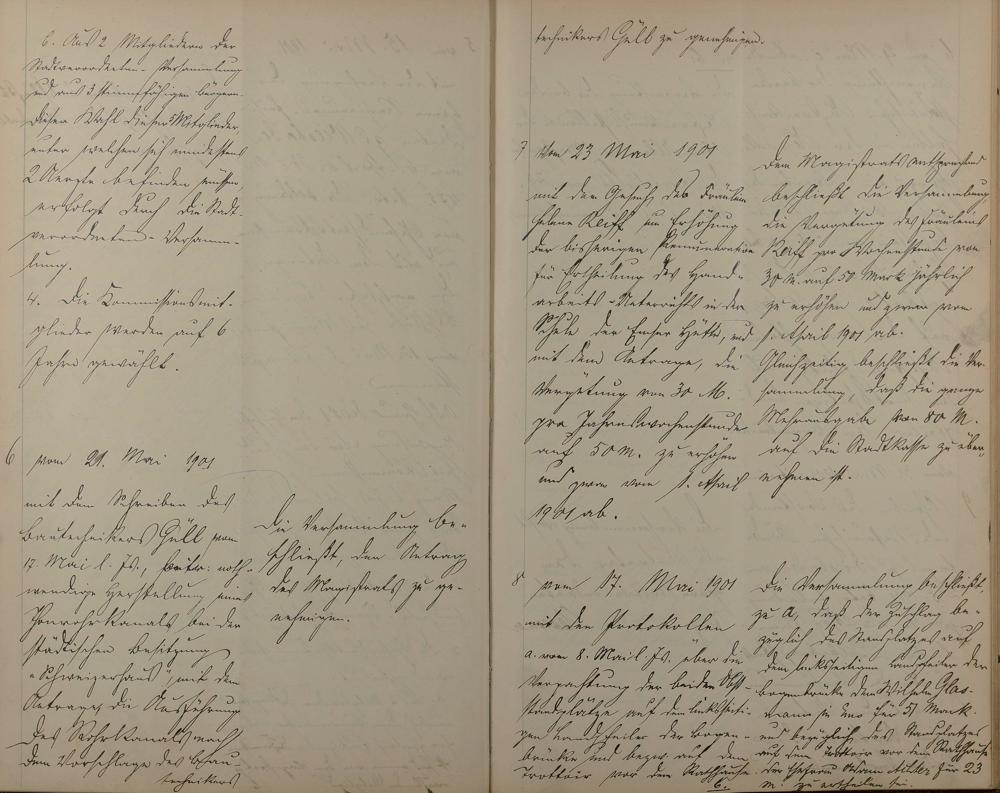 b. Aus 2 Mitgliedern der
Stadtverordneten-Versammlung
und aus 3 stimmfähigen Bürgern.
Dieser Wahl dieser 5 Mitglieder,
unter welchen sich mindestens
2 Aerzte befinden müssen,
erfolgt durch die Stadt-
verordneten-Versamm-
lung.
4. Die Commissionsmit-
glieder werden auf 6
Jahre gewählt.
6 vom 21. Mai 1901
mit dem Schreiben des
Bautechnikers Güll vom
17. Mai l. Js., betr: noth-
wendige Herstellung eines
Thonrohrkanals bei der
städtischen Besitzung
"Schweizerhaus", mit dem
Antrage, die Ausführung
des Rohrkanals nach
dem Vorschlage des Bau-
technikers
Die Versammlung be-
schließt, den Antrag
des Magistrats zu ge-
nehmigen.
technikers Güll zu genehmigen.
7 vom 23 Mai 1901
mit dem Gesuch des Fräulein
Helene Reiff um Erhöhung
der bisherigen Remuneration
für Ertheilung des Hand-
arbeits-Unterrichts in der
Schule der Emser Hütte, und
mit dem Antrage, die
Vergütung von 30 M.
pro Jahreswochenstunde
auf 50 M. zu erhöhen
und zwar vom 1. April
1901 ab.
Dem Magistrats entsprechend
beschließt die Versammlung
die Vergütung des Fräuleins
Reiff pro Wochenstunde von
30 M. auf 50 Mark jährlich
zu erhöhen und zwar vom
1. April 1901 ab.
Gleichzeitig beschließt die Ver-
sammlung, daß die ganze
Mehrausgabe von 80 M.
auf die Stadtkasse zu über-
nehmen ist.
8 vom 17. Mai 1901
mit den Protokollen
a. vom 8. Mai l. Js. über die
Verpachtung der beiden Obst-
standplätze auf dem linksseiti-
gen Landpfeiler der Bogen-
brücke und bezw. auf dem
Trottoir vor dem Rathhause
b.
Die Versammlung beschließt,
zu a, daß der Zuschlag be-
züglich des Standplatzes auf
dem linksseitigen Landpfeiler der
Bogenbrücke dem Wilhelm Glas-
mann in Ems für 51 Mark.
und bezüglich des Standplatzes
auf dem Trottoir vor dem Rathhause
der Ehefrau Adam für 23
M. zu ertheilen sei.